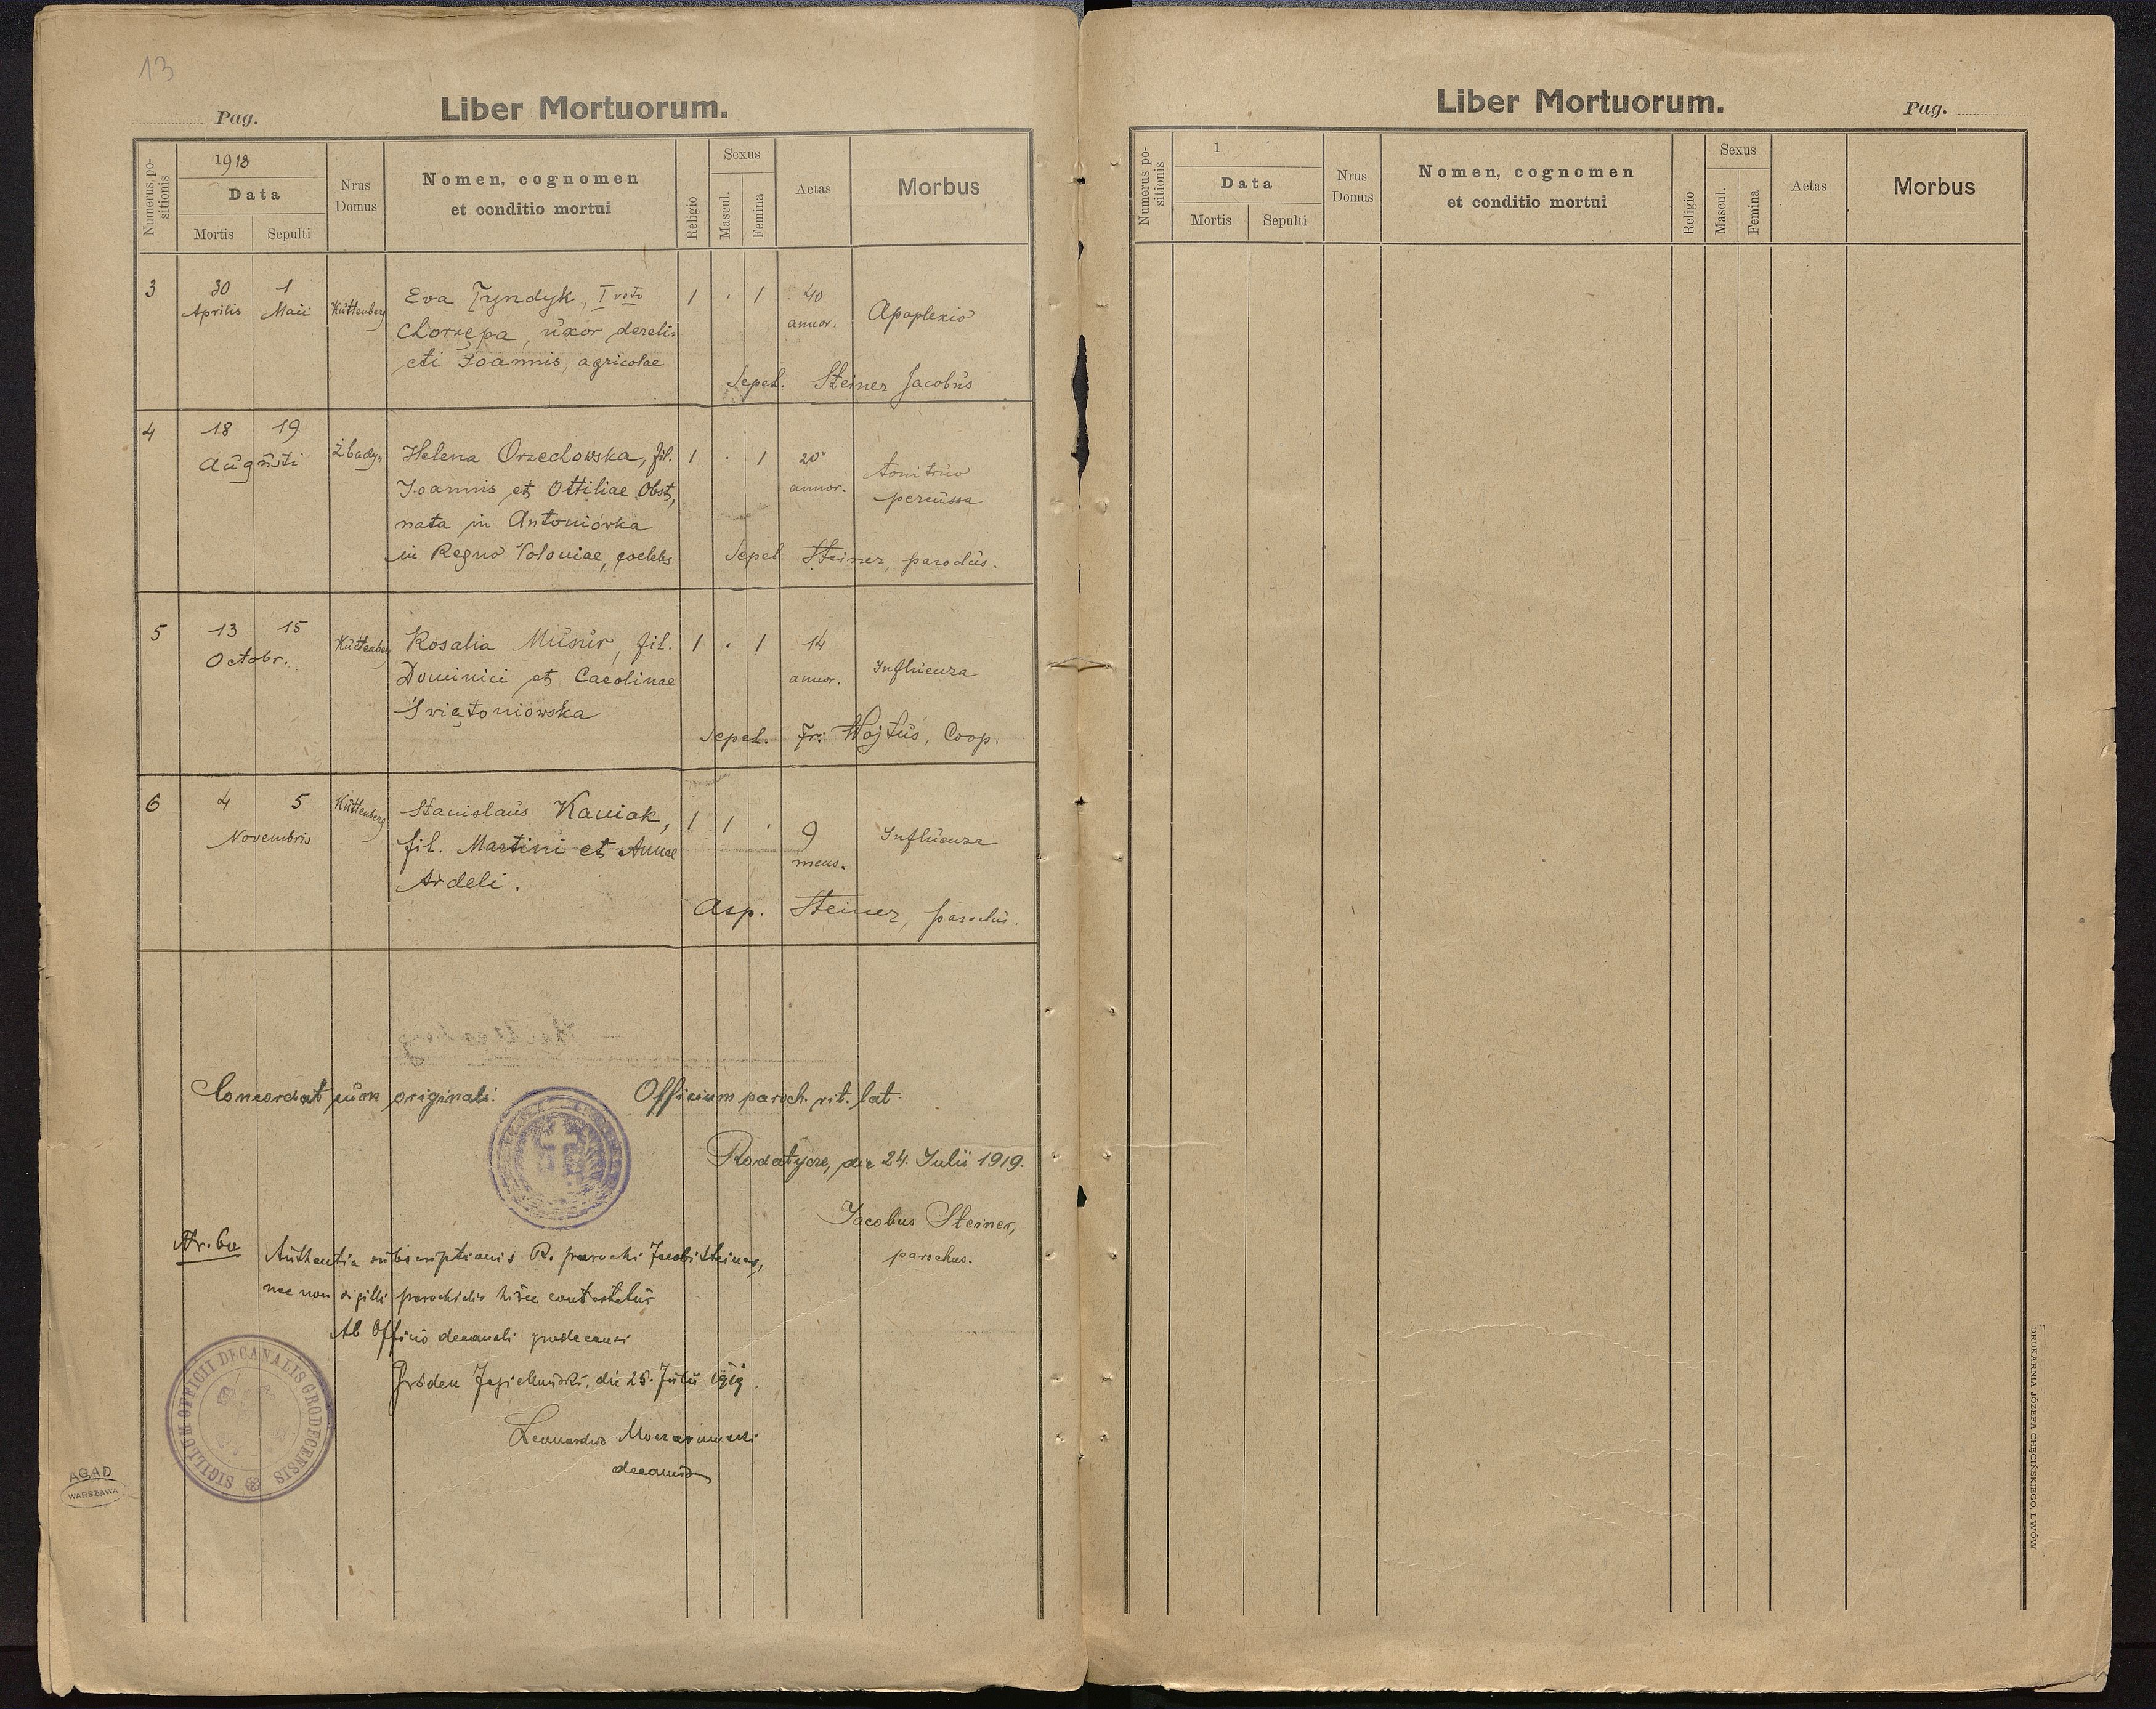 13
Pag.
Liber Mortuorum.
Numerus positionis
1918
Data
Mortis
Sepulti
Nrus Domus
Nomen, cognomen
et conditio mortui
Religio
Sexus
Mascul.
Femina
Aetas
Morbus
3
30 Aprilis
1 Maii
Küttenberg
Eva Tyndyk, I voto
Chorzępa, uxor dereli=
cti Joannis, agricolae
1 . 1
40 annor.
Apoplexio
Sepel. Steiner Jacobus
4
18 19
Augusti
Zbadyn
Helena Orzechowska, fil.
Joannis et Ottiliae Obst,
nata in Antoniówka
in Regno Poloniae, coelebs
1 . 1
20 annor.
tonitruo
percussa
Sepel. Steiner, parochus.
5
13 15
Octobr.
Küttenberg
Rosalia Musur, fil.
Dominici et Carolinae
Świętoniowska
1 . 1
14 annor.
Influenza
Sepel. Fr: Wojtuś, Coop.
6
4 5
Novembris
Küttenberg
Stanislaus Kaniak,
fil. Martini et Annae
Ardeli.
1 1 .
9 mens.
Influenza
Asp. Steiner, parochus.
Concordat cum originali:
Officium paroch. rit. lat.
Rodatycze, die 24. Julii 1919.
Jacobus Steiner,
parochus.
Authentia subscriptionis R. parochi Jacobi Steiner,
nec non sigilli parochialis hisce contestatur
Ab Officio decanali
Gródek Jagielloński, die 25. Julii 1919.
Leonardus
decanus
SIGILLUM OFFICII DECANALIS GRODECENSIS
AGAD
WARSZAWA
Liber Mortuorum.
Pag.
Numerus positionis
1
Data
Mortis
Sepulti
Nrus Domus
Nomen, cognomen
et conditio mortui
Religio
Sexus
Mascul.
Femina
Aetas
Morbus
DRUKARNIA JÓZEFA CHĘCIŃSKIEGO, LWÓW